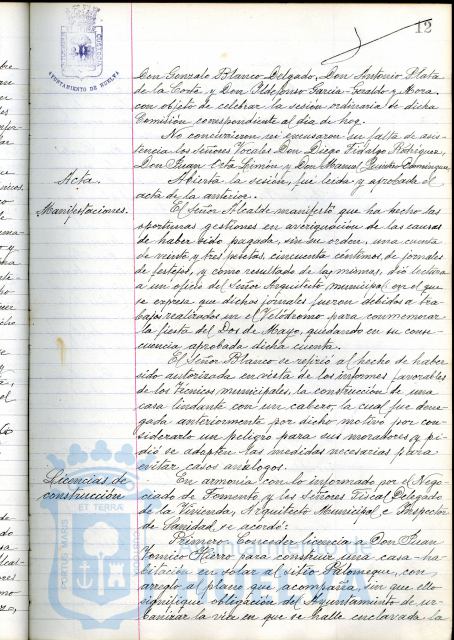 12
AYUNTAMIENTO DE HUELVA
Don Gonzalo Blanco Delgado, Don Antonio Plata
de la Corte y Don Ildefonso García-Geraldo y Mora.
con objeto de celebrar la sesión ordinaria de dicha
Comisión correspondiente al día de hoy.
No concurrieron ni excusaron su falta de asis-
tencia los Señores Vocales Don Diego Fidalgo Rodríguez,
Don Juan Orta Limón y Don Manuel Domínguez.
Acta.
Abierta la sesión, fué leida y aprobada el
acta de la anterior.
Manifestaciones.
El Señor Alcalde manifestó que ha hecho las
oportunas gestiones en averiguación de las causas
de haber sido pagada, sin su orden, una cuenta
de veinte y tres pesetas, cincuenta céntimos de jornales
de festejos, y como resultado de las mismas, dió lectura
a un oficio del Señor Arquitecto municipal en el que
se expresa que dichos jornales fueron debidos a tra-
bajos realizados en el Velódromo para conmemorar
la fiesta del Dos de Mayo, quedando en su conse-
cuencia aprobada dicha cuenta.
El Señor Blanco se refirió al hecho de haber
sido autorizada en vista de los informes favorables
de los Técnicos municipales, la construcción de una
casa lindante con un cabezo, la cual fue dene-
gada anteriormente por dicho motivo por con-
siderarlo un peligro para sus moradores y pi-
dió se adopten las medidas necesarias para
evitar casos análogos.
Licencias de
construcción
En armonía con lo informado por el Nego-
ciado de Fomento y los Señores Fiscal Delegado
de la Vivienda, Arquitecto Municipal e Inspector
de Sanidad, se acordó:
Primero: Conceder licencia a Don Juan
Hierro para construir una casa-ha-
bitación en solar al sitio Palomeque, con
arreglo al plano que acompaña, sin que ello
signifique obligación del Ayuntamiento de ur-
banizar la vía en que se halle enclavada la
PORTUS MARIS ET TERRAE CUSTODIA